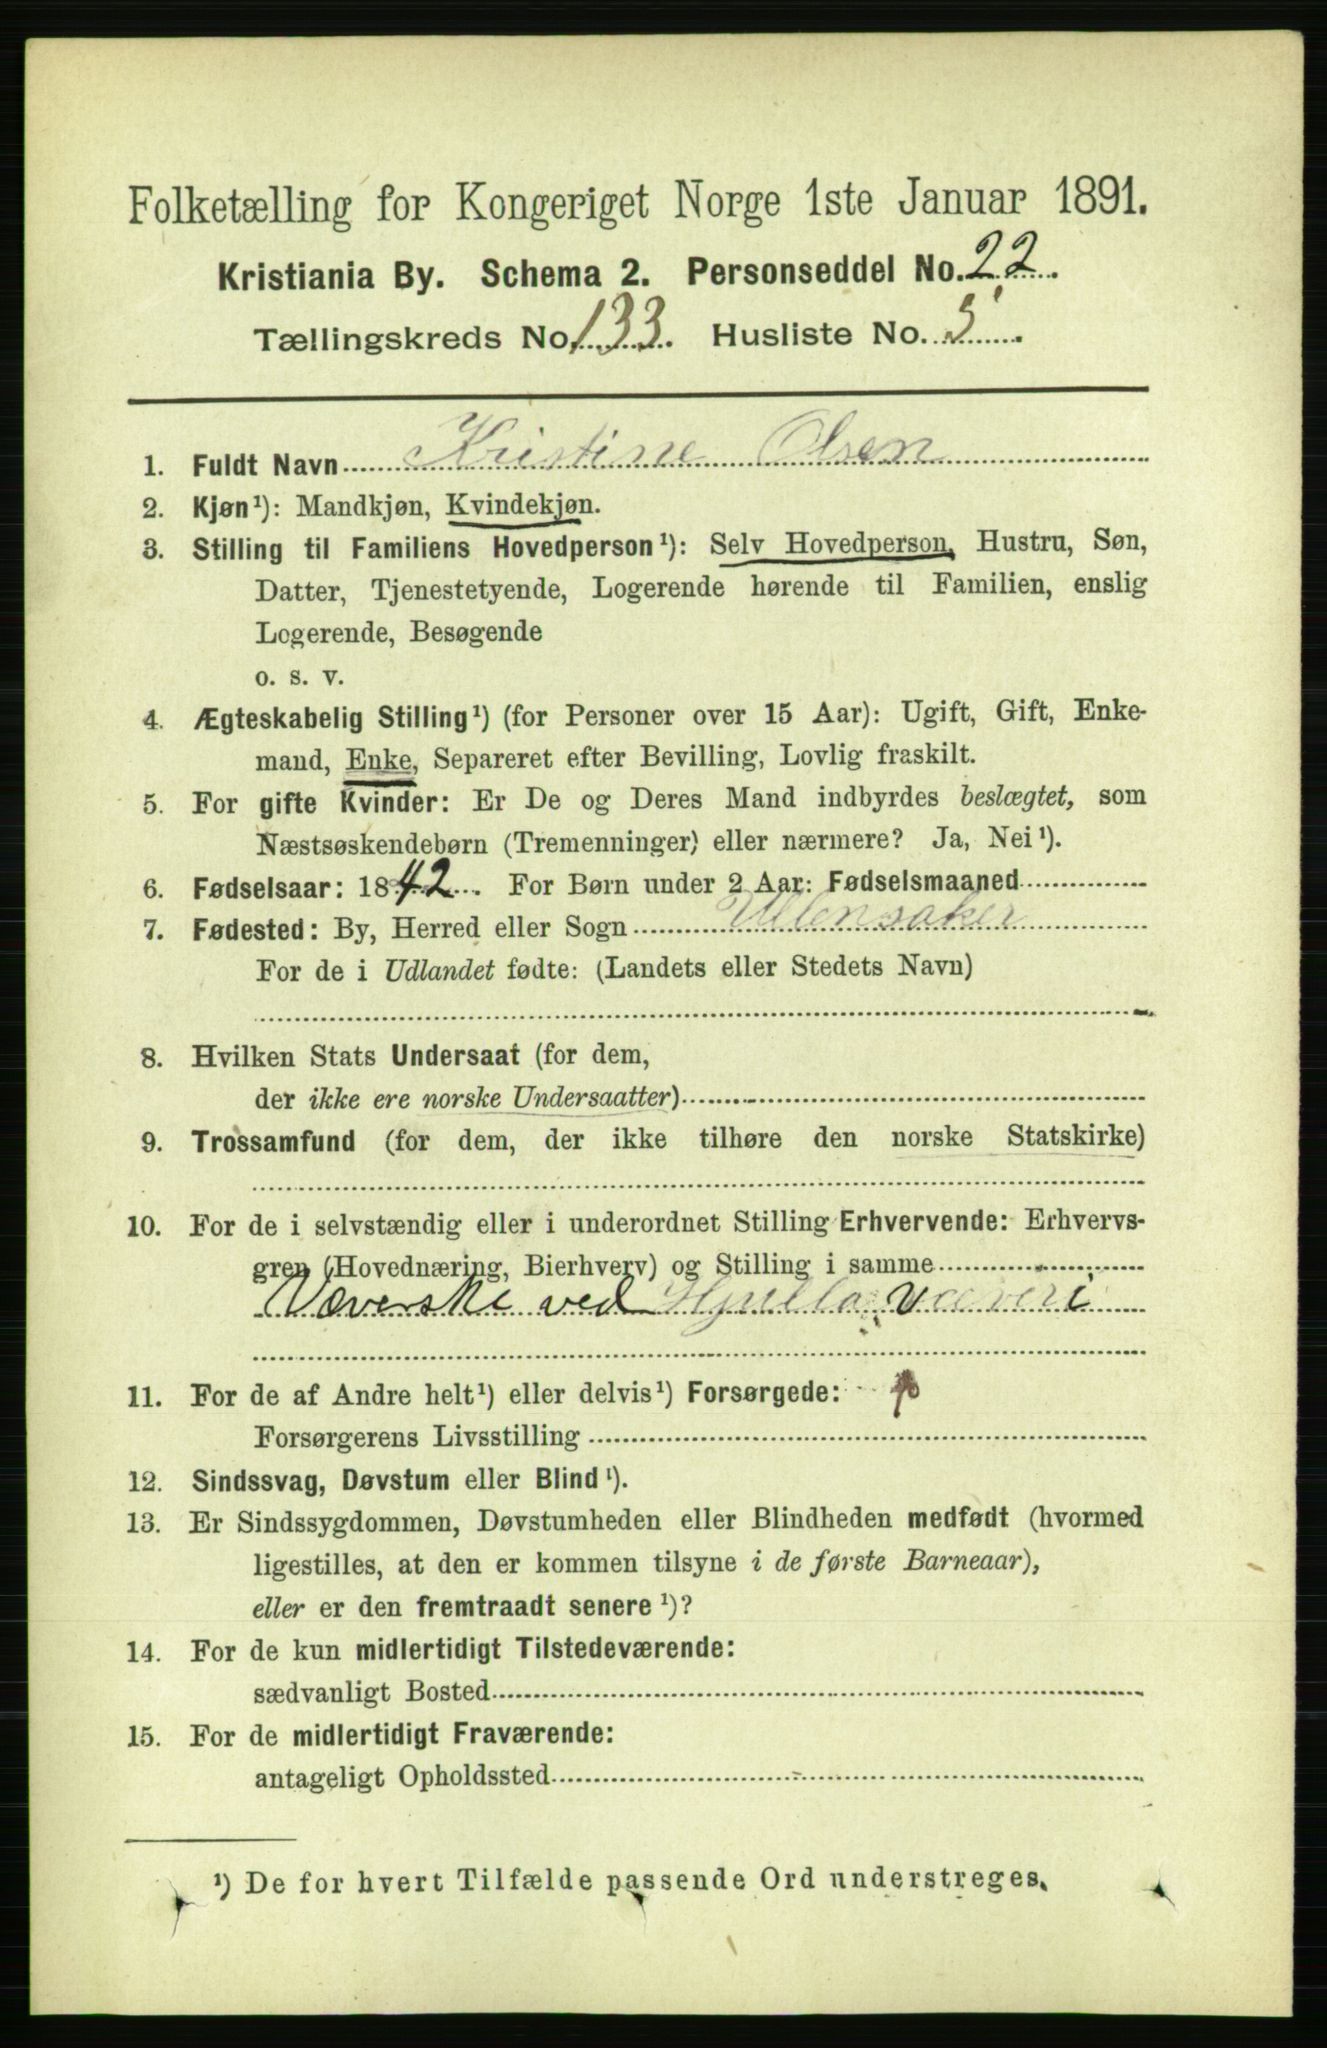 Folketælling for Kongeriget Norge 1ste Januar 1891.
Kristiania By. Schema 2. Personseddel No. 22.
Tællingskreds No. 133. Husliste No. 5.
1. Fuldt Navn Kristine Olsen
2. Kjøn¹): Mandkjøn, Kvindekjøn.
3. Stilling til Familiens Hovedperson¹): Selv Hovedperson, Hustru, Søn,
Datter, Tjenestetyende, Logerende hørende til Familien, enslig
Logerende, Besøgende
o. s. v.
4. Ægteskabelig Stilling¹) (for Personer over 15 Aar): Ugift, Gift, Enke-
mand, Enke, Separeret efter Bevilling, Lovlig fraskilt.
5. For gifte Kvinder: Er De og Deres Mand indbyrdes beslægtet, som
Næstsøskendebørn (Tremenninger) eller nærmere? Ja, Nei¹).
6. Fødselsaar: 1842. For Børn under 2 Aar: Fødselsmaaned
7. Fødested: By, Herred eller Sogn Ullensaker
For de i Udlandet fødte: (Landets eller Stedets Navn)
8. Hvilken Stats Undersaat (for dem,
der ikke ere norske Undersaatter)
9. Trossamfund (for dem, der ikke tilhøre den norske Statskirke)
10. For de i selvstændig eller i underordnet Stilling Erhvervende: Erhvervs-
gren (Hovednæring, Bierhverv) og Stilling i samme
Væverske ved Hjulla væveri
11. For de af Andre helt¹) eller delvis¹) Forsørgede:
Forsørgerens Livsstilling
12. Sindssvag, Døvstum eller Blind¹).
13. Er Sindssygdommen, Døvstumheden eller Blindheden medfødt (hvormed
ligestilles, at den er kommen tilsyne i de første Barneaar),
eller er den fremtraadt senere¹)?
14. For de kun midlertidigt Tilstedeværende:
sædvanligt Bosted
15. For de midlertidigt Fraværende:
antageligt Opholdssted
¹) De for hvert Tilfælde passende Ord understreges.